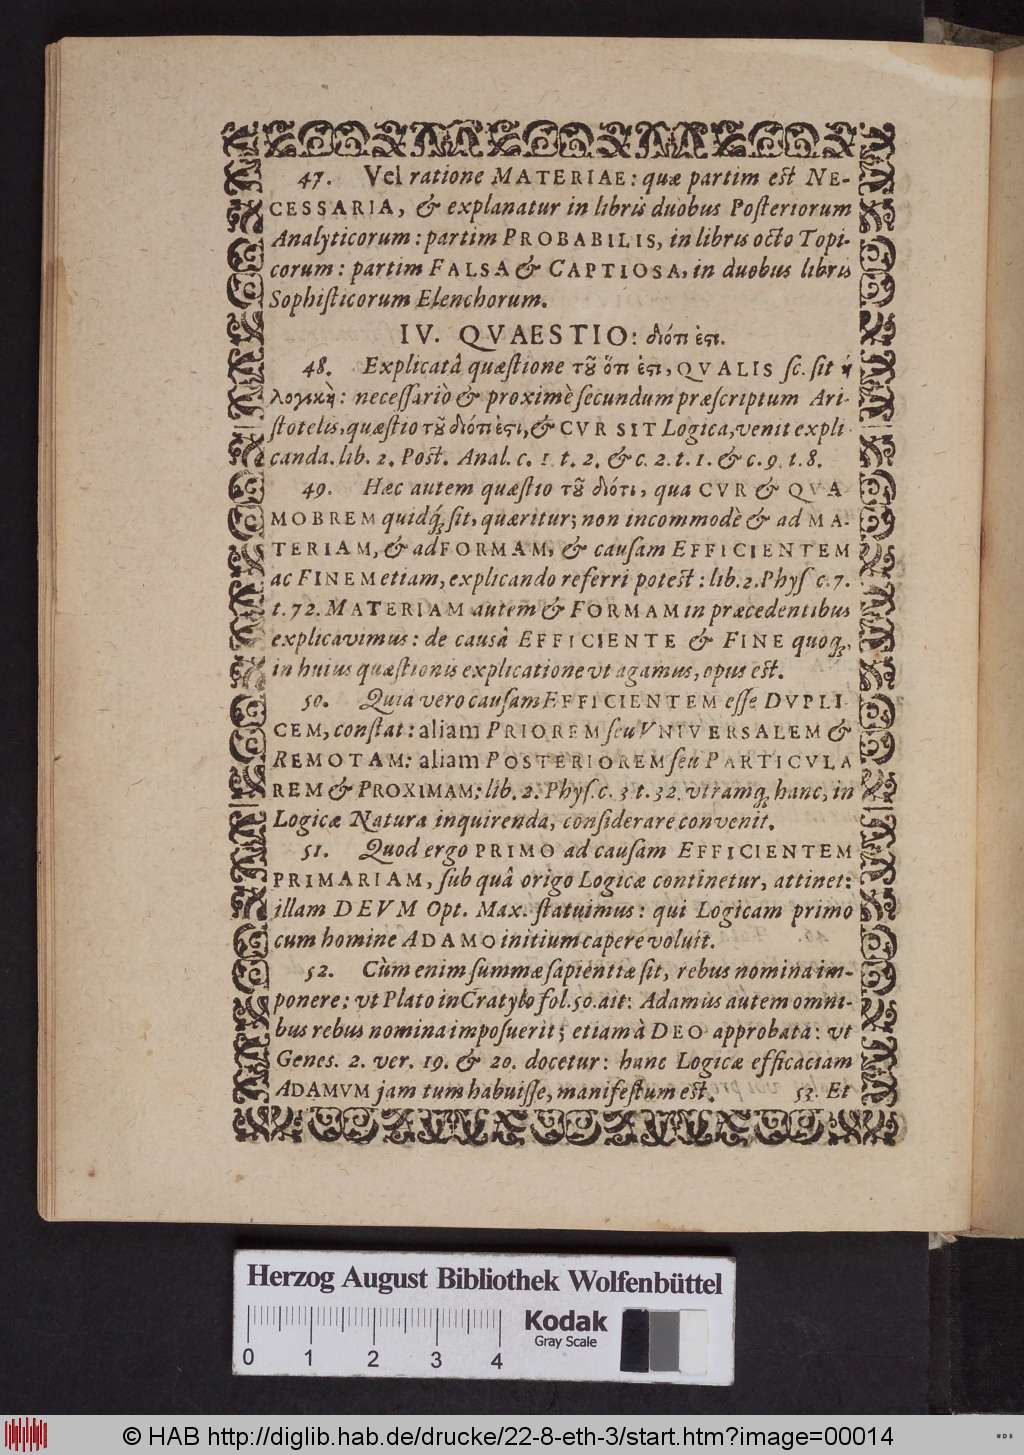 47. Vel ratione MATERIAE: quæ partim est NE-
CESSARIA, & explanatur in libris duobus Posteriorum
Analyticorum: partim PROBABILIS, in libris octo Topi-
corum: partim FALSA & CAPTIOSA, in duobus libris
Sophiſticorum Elenchorum.
IV. QVAESTIO: διότι ἐστι.
48. Explicatâ quæſtione τοῦ ὅτι ἐστι, QVALIS ſc. ſit ἡ
λογικὴ: neceſſariò & proximè ſecundum præſcriptum Ari-
ſtotelis, quæſtio τοῦ διότι ἐστι, & CVR SIT Logica, venit expli
canda. lib. 2. Post. Anal. c. 1 t. 2. & c. 2. t. 1. & c. 9. t. 8.
49. Hæc autem quæſtio τοῦ διότι, qua CVR & QVA
MOBREM quidq́; ſit, quæritur; non incommodè & ad MA-
TERIAM, & ad FORMAM, & cauſam EFFICIENTEM
ac FINEM etiam, explicando referri potest: lib. 2. Phyſ c. 7.
t. 72. MATERIAM autem & FORMAM in præcedentibus
explicavimus: de causâ EFFICIENTE & FINE quoq;,
in huius quæſtionis explicatione vt agamus, opus est.
50. Quia vero cauſam EFFICIENTEM eſſe DVPLI
CEM, conſtat: aliam PRIOREM ſeu VNIVERSALEM &
REMOTAM: aliam POSTERIOREM ſeu PARTICVLA
REM & PROXIMAM: lib. 2. Phyſ. c. 3 t. 32. vtramq; hanc, in
Logicæ Natura inquirenda, conſiderare convenit.
51. Quod ergo PRIMO ad cauſam EFFICIENTEM
PRIMARIAM, ſub quâ origo Logicæ continetur, attinet:
illam DEVM Opt. Max. ſtatuimus: qui Logicam primo
cum homine ADAMO initium capere voluit.
52. Cùm enim ſummæ ſapientiæ ſit, rebus nomina im-
ponere: vt Plato in Cratylo fol. 50. ait: Adamus autem omni-
bus rebus nomina impoſuerit; etiam à DEO approbata: vt
Geneſ. 2. ver. 19. & 20. docetur: hanc Logicæ efficaciam
ADAMVM jam tum habuiſſe, manifeſtum est. 53. Et
Herzog August Bibliothek Wolfenbüttel
Kodak
Gray Scale
0 1 2 3 4
© HAB http://diglib.hab.de/drucke/22-8-eth-3/start.htm?image=00014
WDB